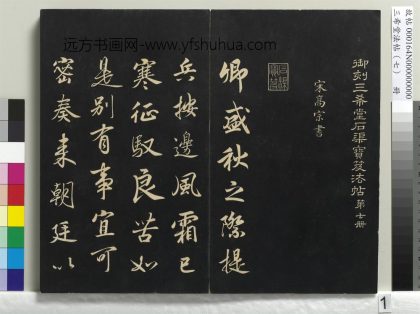 御刻三希堂石渠寶笈法帖第七册
宋高宗書
卿盛秋之際提
兵按邊風霜已
寒征馭良苦如
是别有事宜可
密奏来朝廷以
远方书画网-www.yfshuhua.com
故帖 000164N000000000
三希堂法帖（七） 册
1